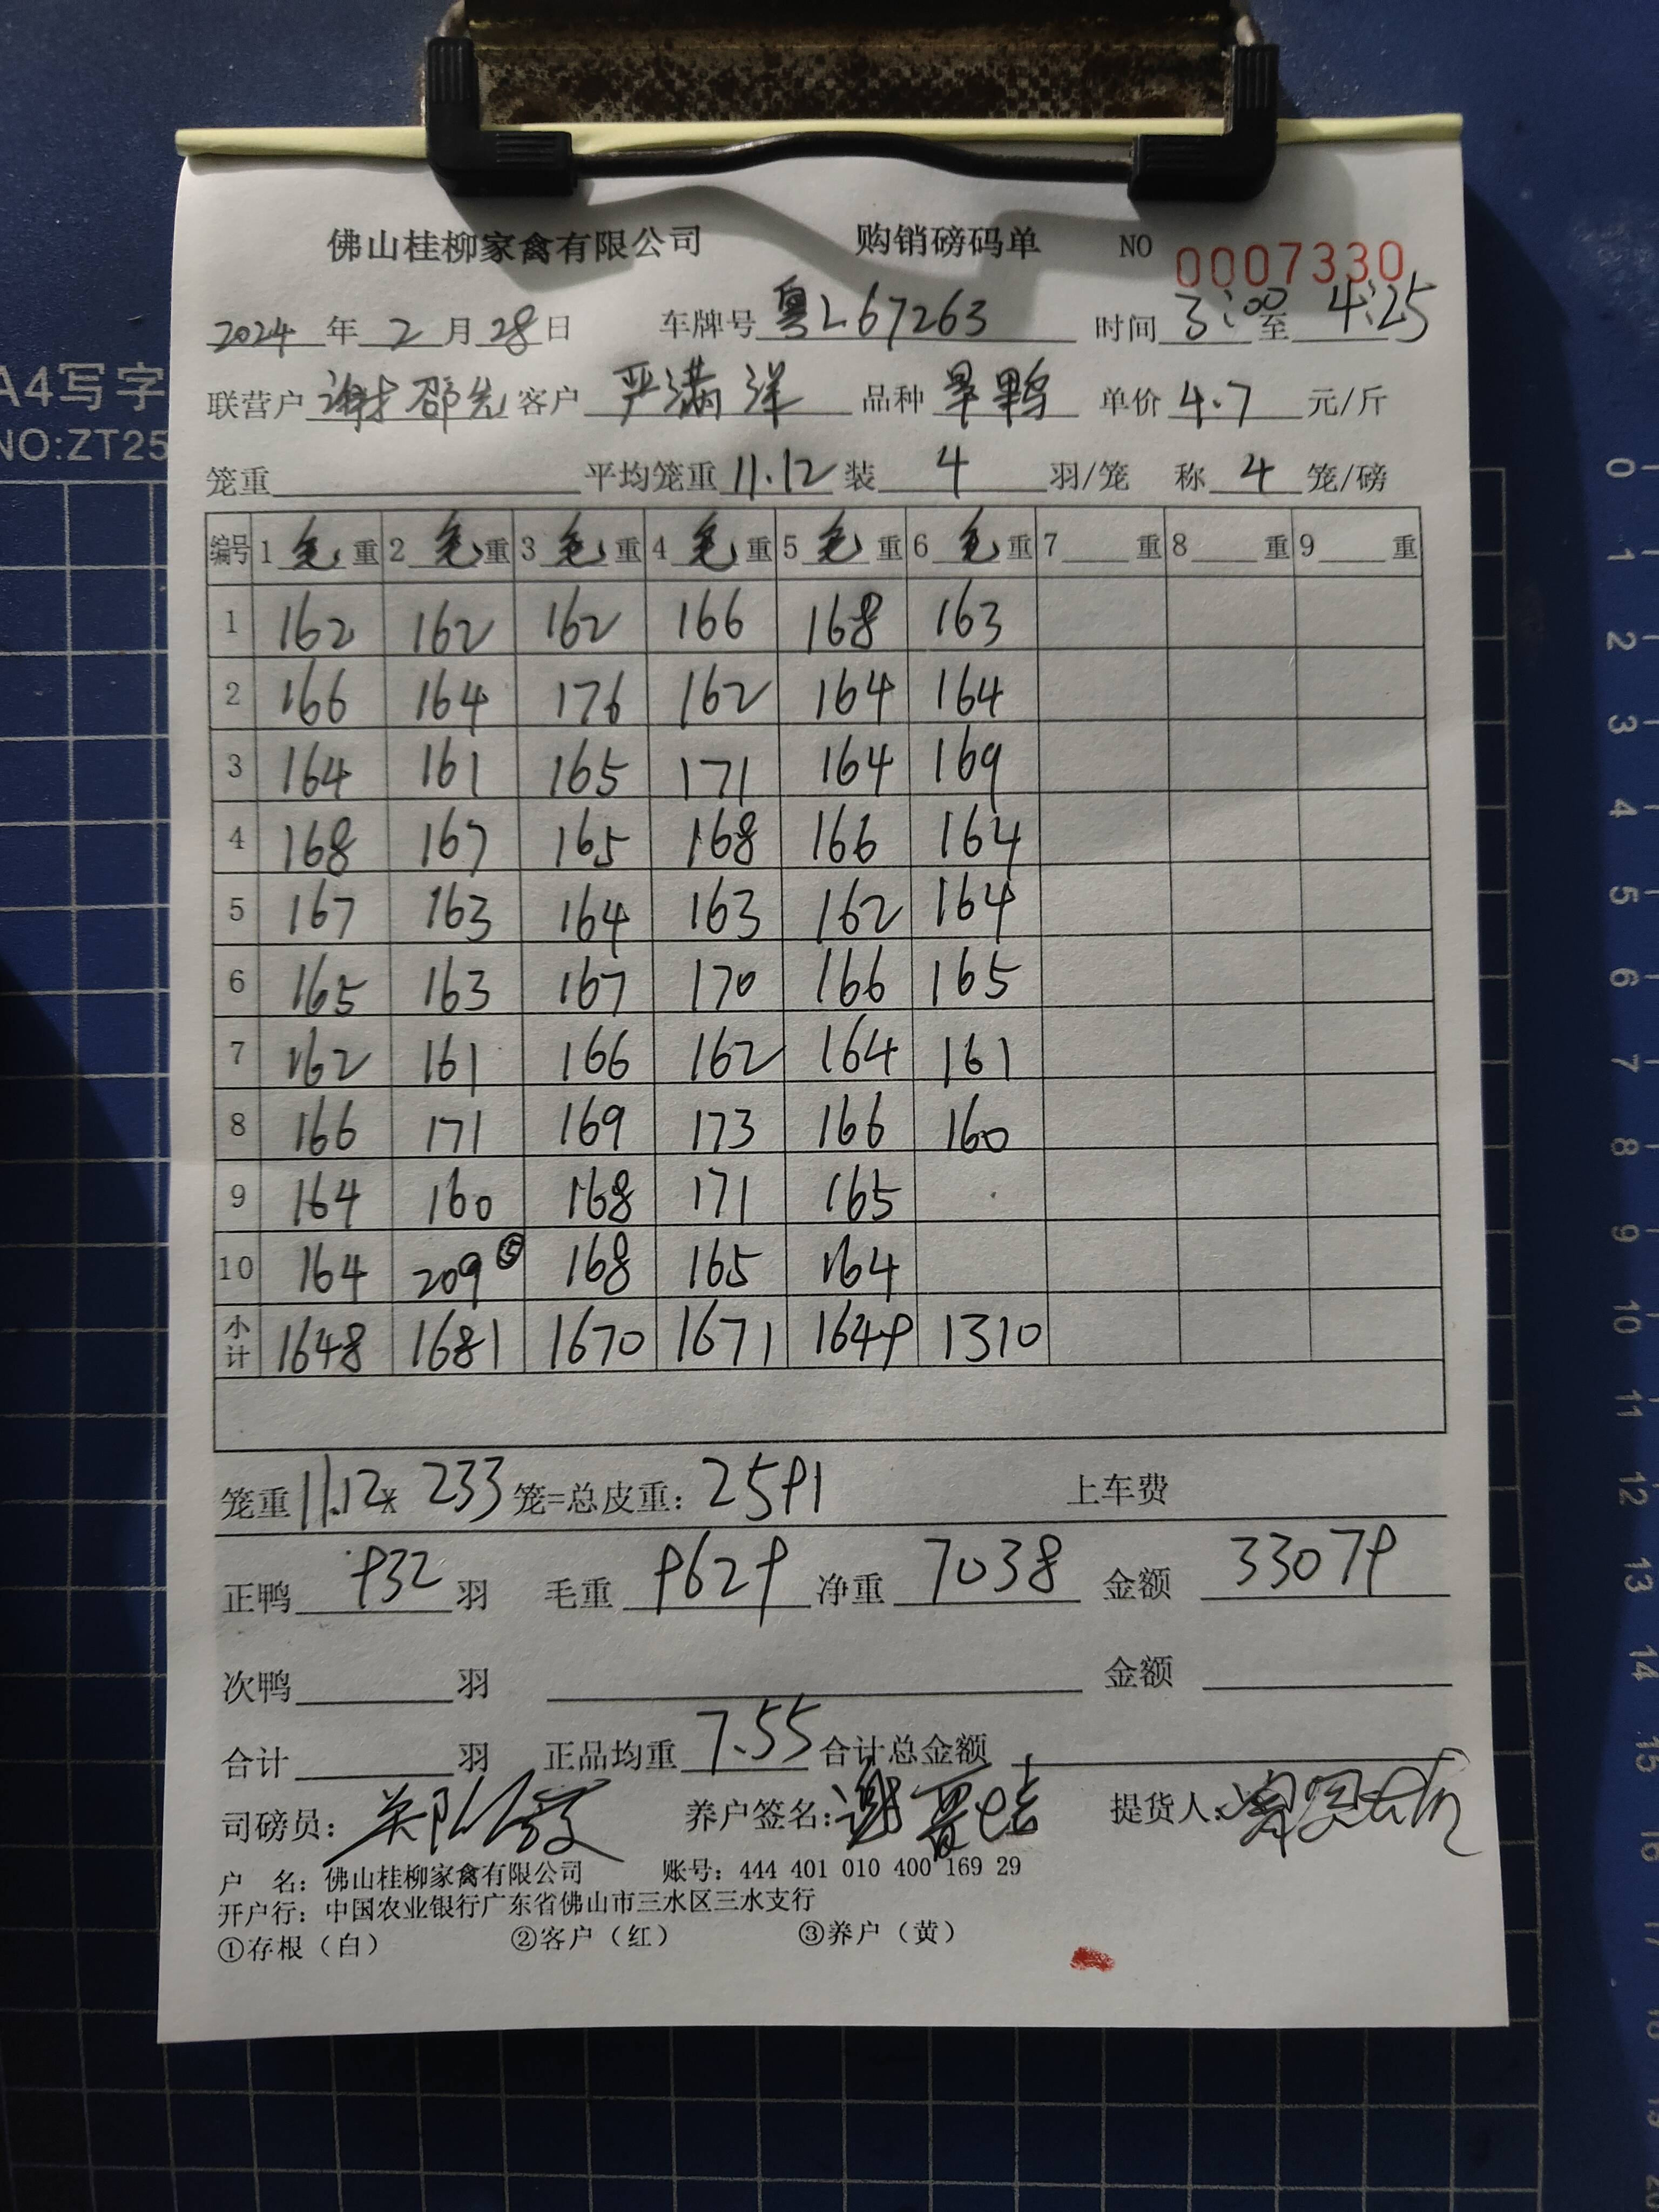 佛山桂柳家禽有限公司 购销磅码单 NO 0007330
2024年2月28日 车牌号 粤L67263 时间 3:00至4:25
联营户 谢邵先 客户 严满洋 品种 旱鸭 单价 4.7 元/斤
笼重 平均笼重 11.12 装 4 羽/笼 称 4 笼/磅
编号 1 毛 重 2 毛 重 3 毛 重 4 毛 重 5 毛 重 6 毛 重 7 重 8 重 9 重
1 162 162 162 166 168 163
2 166 164 176 162 164 164
3 164 161 165 171 164 169
4 168 167 165 168 166 164
5 167 163 164 163 162 164
6 165 163 167 170 166 165
7 162 161 166 162 164 161
8 166 171 169 173 166 160
9 164 160 168 171 165
10 164 209 ⑤ 168 165 164
小计 1648 1681 1670 1671 1649 1310
笼重 11.12 x 233 笼=总皮重: 2591 上车费
正鸭 932 羽 毛重 9629 净重 7038 金额 33079
次鸭 羽 金额
合计 羽 正品均重 7.55 合计总金额
司磅员: 养户签名: 谢 提货人:
户 名: 佛山桂柳家禽有限公司 账号: 444 401 010 400 169 29
开户行: 中国农业银行广东省佛山市三水区三水支行
①存根（白） ②客户（红） ③养户（黄）
A4写字
NO:ZT25
0
1
2
3
4
5
6
7
8
9
10
11
12
13
14
15
16
17
18
19
20